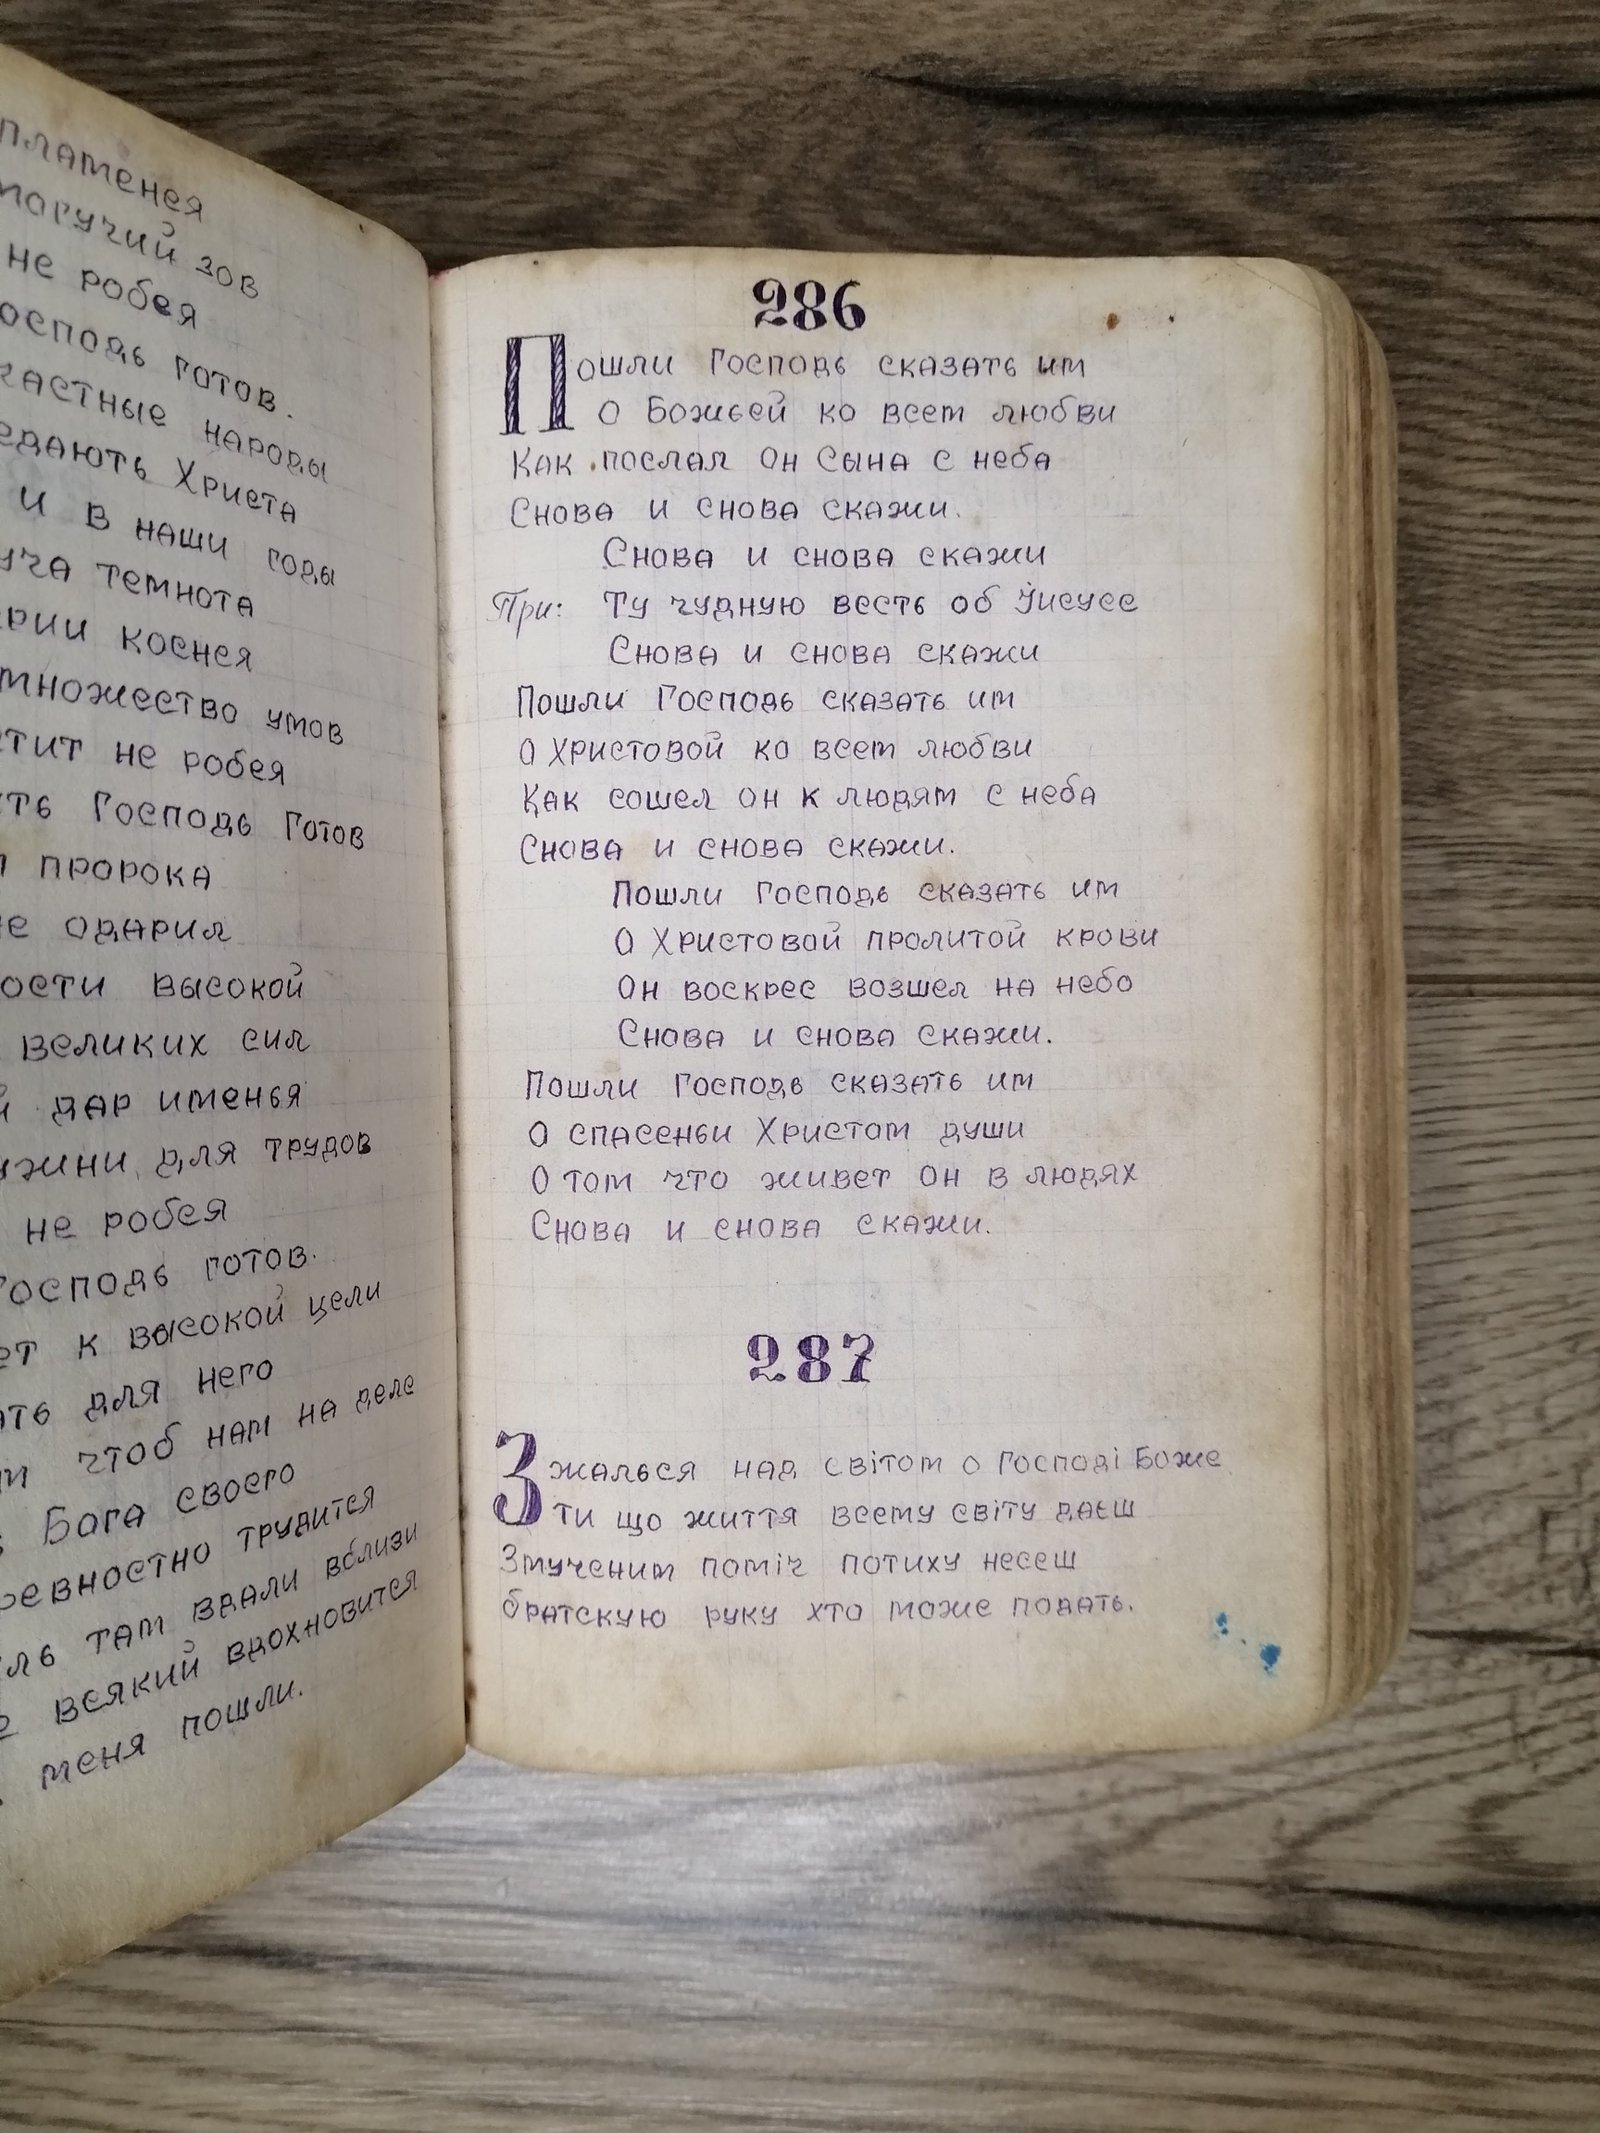 пламенея
могучий зов
не робея
готов.
народы
Христа
и в наши годы
темнота
коснея
множество умов
не робея
Господь Готов
пророка
одарил
высокой
великих сил
дар именья
для трудов
не робея
Господь готов.
к высокой цели
для него
чтоб нам на деле
Бога своего
ревностно трудится
там вдали вблизи
всякий вдохновится
меня пошли.
286
Пошли Господь сказать им
О Божьей ко всем любви
Как послал Он Сына с неба
Снова и снова скажи.
Снова и снова скажи
При: Ту чудную весть об Иисусе
Снова и снова скажи
Пошли Господь сказать им
О Христовой ко всем любви
Как сошел он к людям с неба
Снова и снова скажи.
Пошли Господь сказать им
О Христовой пролитой крови
Он воскрес возшел на небо
Снова и снова скажи.
Пошли Господь сказать им
О спасеньи Христом души
О том что живет он в людях
Снова и снова скажи.
287
Зжалься над світом о Господі Боже
ти що життя всему світу даєш
Змученим поміч потиху несеш
братскую руку хто може подать.